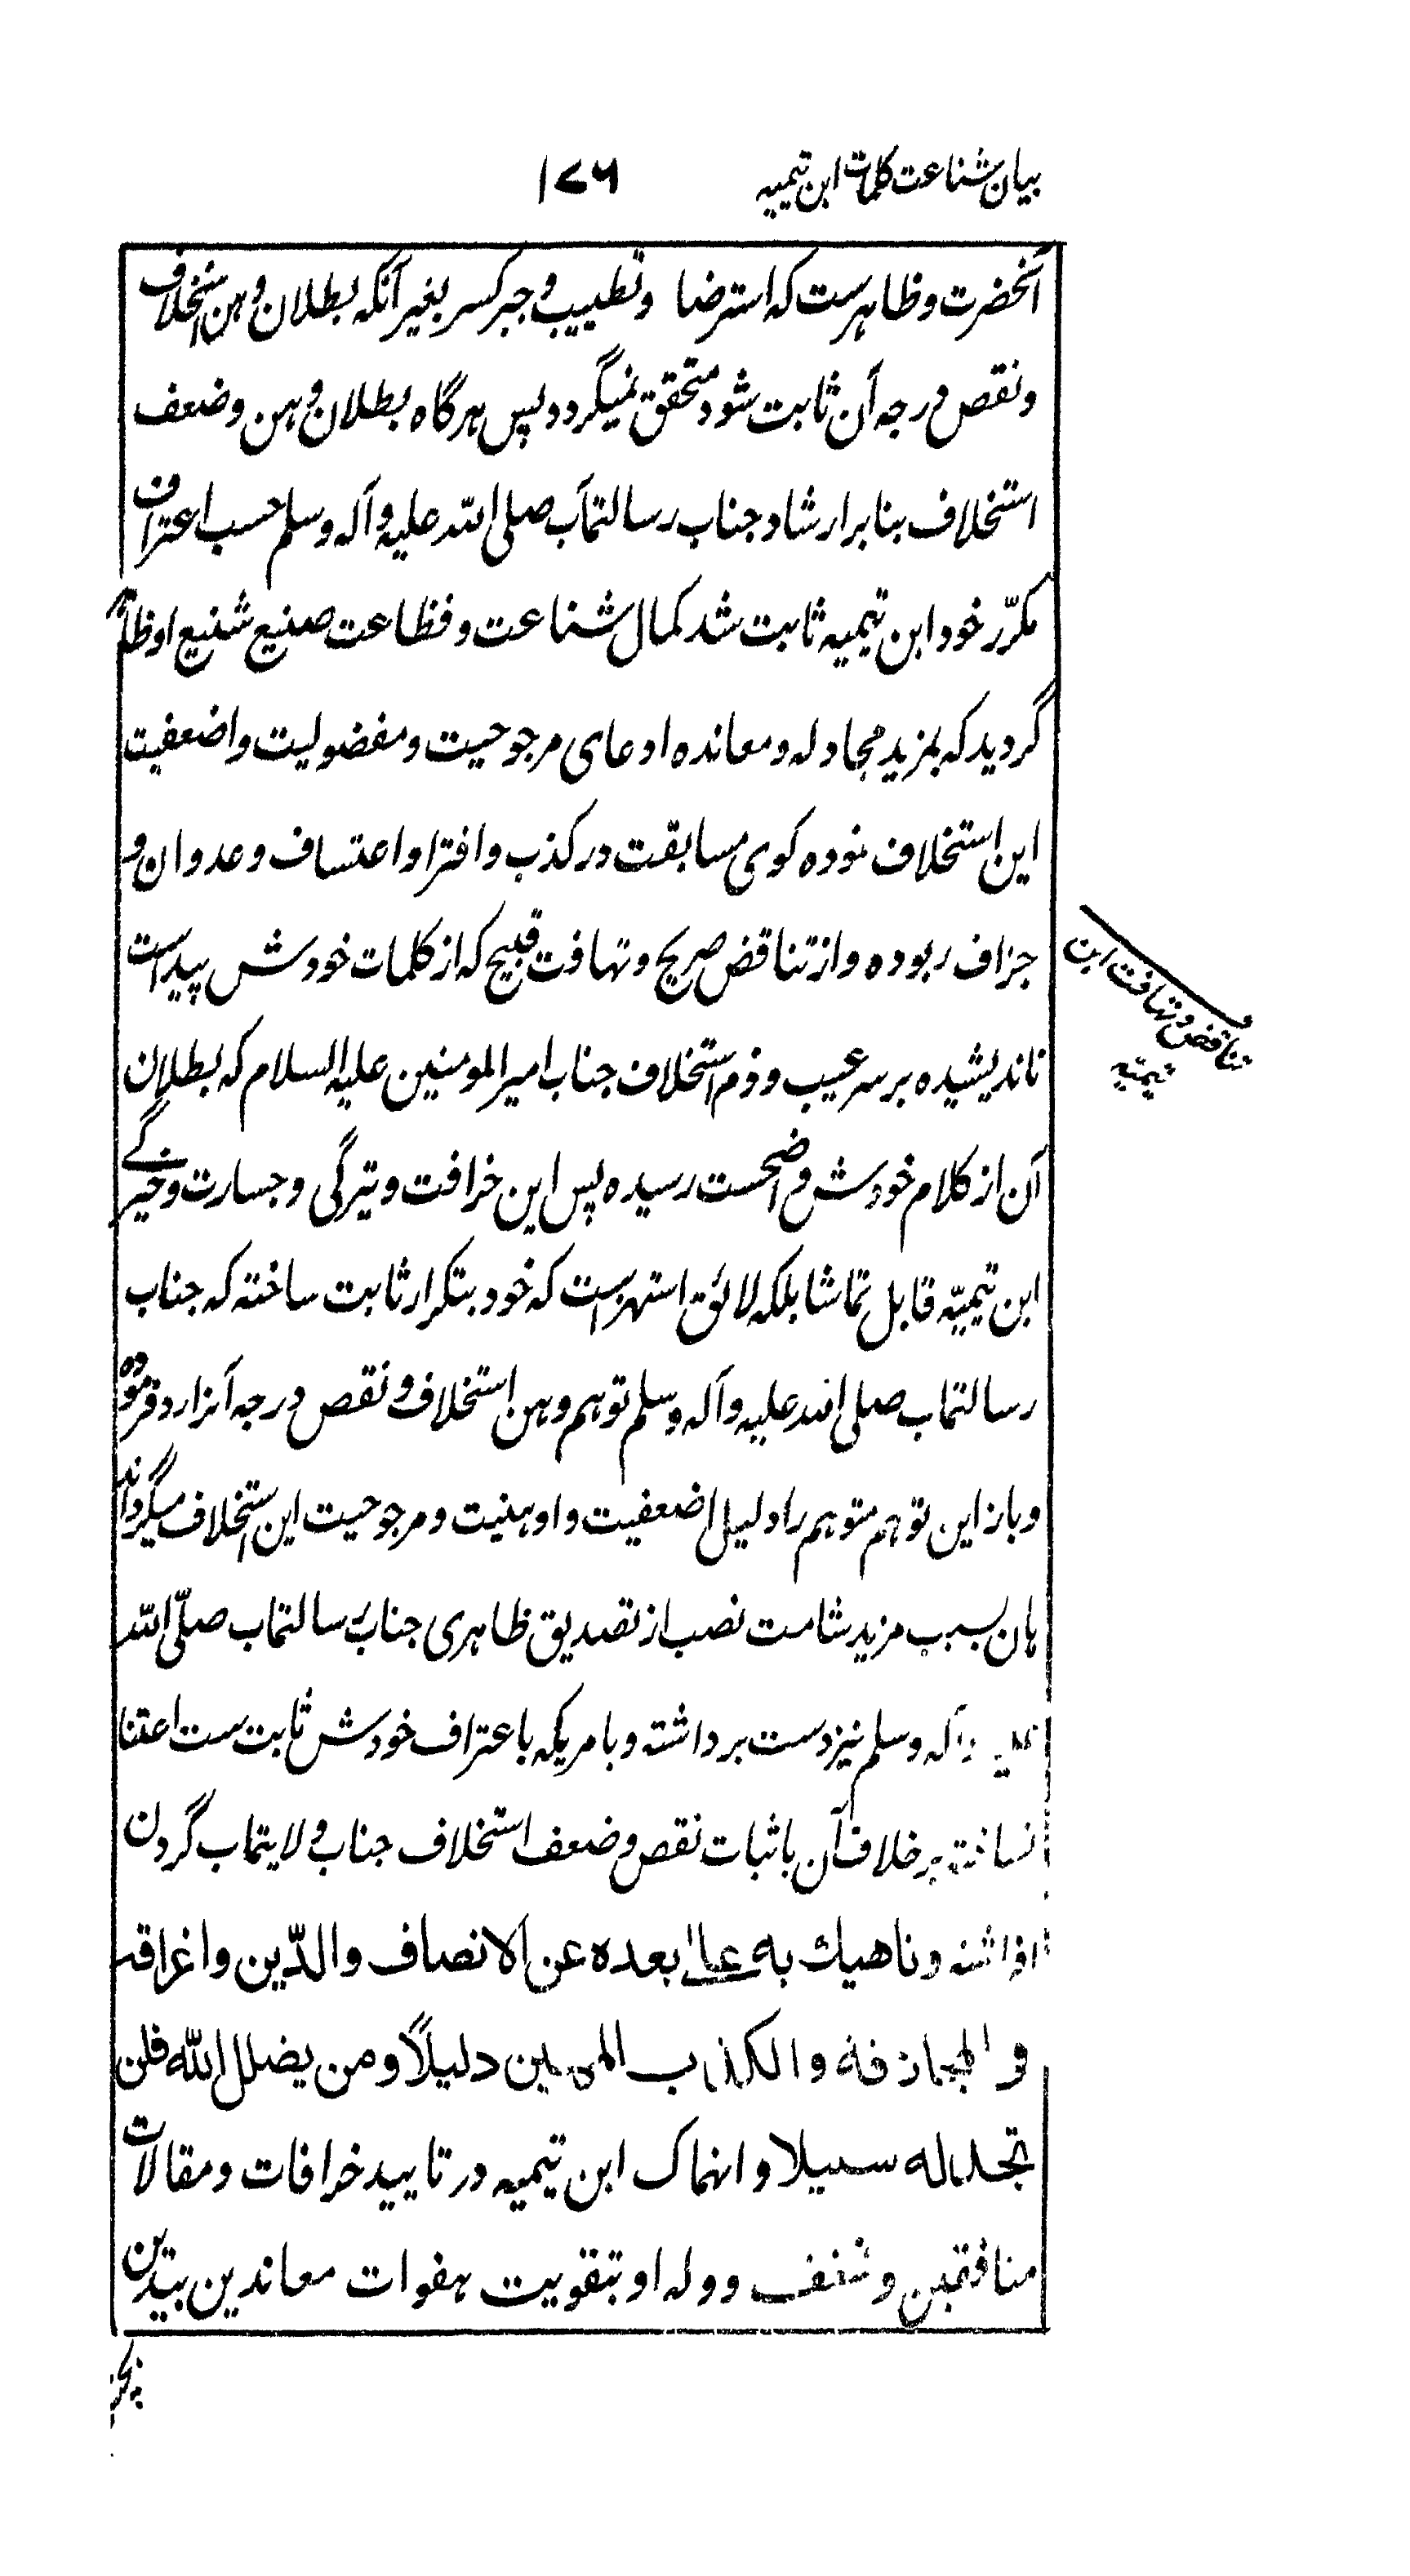 بیان شناعت کلمات ابن تیمیه ۱۷۶
آنحضرت و ظاهرست که استرضا و تطییب و جبر کسر بغیر آنکه بطلان وهن استخلاف
و نقص درجه آن ثابت شود متحقق نمیگردد پس هرگاه بطلان وهن و ضعف
استخلاف بنابر ارشاد جناب رسالتمآب صلی الله علیه وآله وسلم حسب اعتراف
مکرّر خود ابن تیمیه ثابت شد کمال شناعت و فظاعت صنیع شنیع او ظاهر
گردید که بمزید مجادله و معانده ادعای مرجوحیت و مفضولیت و اضعفیت
این استخلاف نموده کوی مسابقت در کذب و افترا و اعتساف و عدوان و
جزاف ربوده و از تناقض صریح و تهافت قبیح که از کلمات خودش پیداست
نااندیشیده بر سر عیب و ذم استخلاف جناب امیر المومنین علیه السلام که بطلان
آن از کلام خودش واضحست رسیده پس این خرافت و تیرگی و جسارت و خیرگے
ابن تیمیّه قابل تماشا بلکه لائق استهزاست که خود بتکرار ثابت ساخته که جناب
رسالتماب صلی الله علیه وآله وسلم توهم وهن استخلاف و نقص درجه آنرا رد فرموده
و باز این توهم متوهم را دلیل اضعفیت و اوهنیت و مرجوحیت این استخلاف میگرداند
هان بسبب مزید شامت نصب از تصدیق ظاهری جناب رسالتماب صلّی الله
علیه وآله وسلم نیز دست برداشته و بامریکه باعتراف خودش ثابت ست اعتنا
نساخته بر خلاف آن باثبات نقص و ضعف استخلاف جناب ولایتماب گردن
افراشته وناهيك به على بعده عن الانصاف والدّين واغراقه
فى المجازفة والكذب المهين دليلًا ومن يضلل الله فلن
تجد له سبيلا و انهماک ابن تیمیه در تایید خرافات و مقالات
منافقین و شغف و وله او بتقویت هفوات معاندین بیدین
تناقض و تهافت ابن
تیمیّه